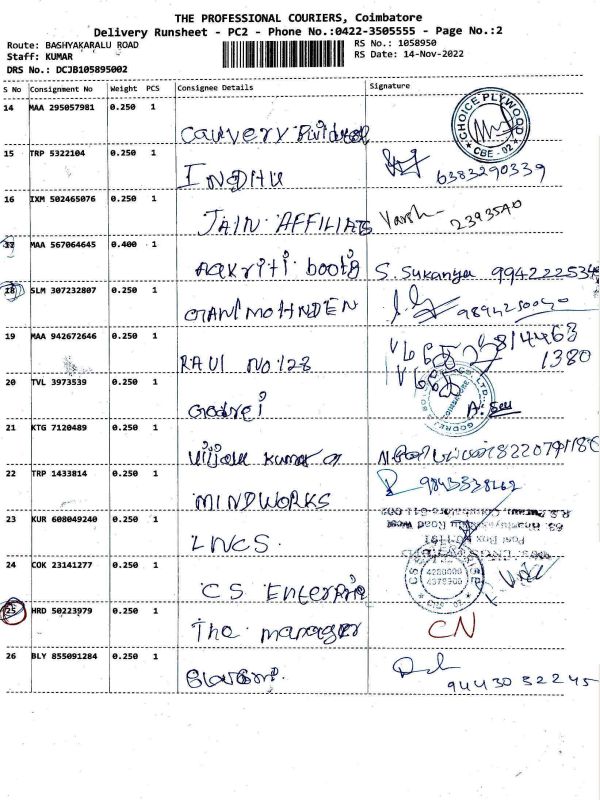 THE PROFESSIONAL COURIERS, Coimbatore
Delivery Runsheet - PC2 - Phone No.:0422-3505555 - Page No.:2
Route: BASHYAKARALU ROAD
RS No.: 1058950
Staff: KUMAR
RS Date: 14-Nov-2022
DRS No.: DCJB105895002
S No Consignment No Weight PCS Consignee Details Signature
14 MAA 295057981 0.250 1
CHOICE PLYWOOD
CBE - 02
Cauvery
15 TRP 5322104 0.250 1
INDHU 6383290339
16 IXM 502465076 0.250 1
JAIN AFFILIATS Varsh 2393540
17 MAA 567064645 0.400 1
Aakriti booti S. Sukanya 994222534
18 SLM 307232807 0.250 1
GANI MOHNDEN
19 MAA 942672646 0.250 1
RAVI NO:128
814463
1380
20 TVL 3973539 0.250 1
Godrej
21 KTG 7120489 0.250 1
Kumar
22 TRP 1433814 0.250 1
MINDWORKS 9843338262
23 KUR 608049240 0.250 1
LNCS
24 COK 23141277 0.250 1
CS Enterprie
25 HRD 50223979 0.250 1
The manager CN
26 BLY 855091284 0.250 1
9443032245